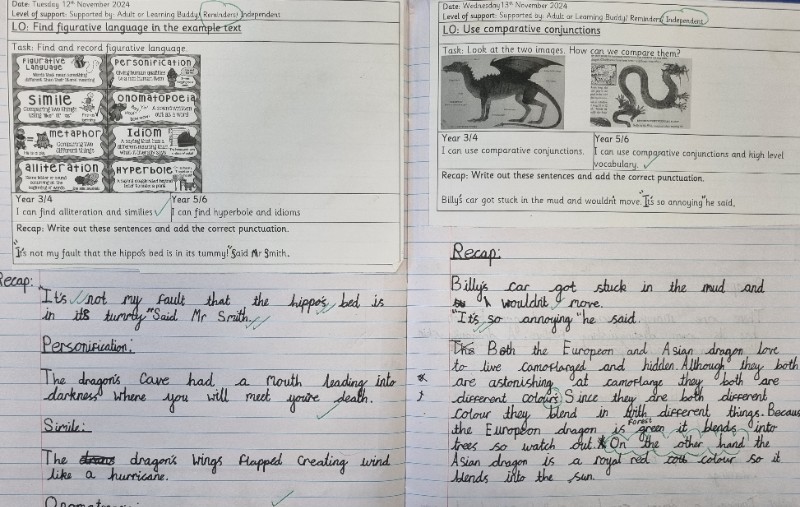 Date: Tuesday 12th November 2024
Level of support: Supported by: Adult or Learning Buddy/ Reminders/ Independent
LO: Find figurative language in the example text
Task: Find and record figurative language.
Figurative Language
Personification
Simile
Onomatopoeia
Metaphor
Comparing two different things
Idiom
Alliteration
Hyperbole
Year 3/4
I can find alliteration and similies
Year 5/6
I can find hyperbole and idioms
Recap: Write out these sentences and add the correct punctuation.
"It's not my fault that the hippo's bed is in its tummy!" Said Mr Smith.
Recap:
"It's not my fault that the hippo's bed is
in its tummy" Said Mr Smith.
Personification:
The dragon's cave had a mouth leading into
darkness where you will meet you're death.
Simile:
The dragon's wings flapped creating wind
like a hurricane.
Onomatopoeia:
Date: Wednesday 13th November 2024
Level of support: Supported by: Adult or Learning Buddy/ Reminders/ Independent
LO: Use comparative conjunctions
Task: Look at the two images. How can we compare them?
Year 3/4
I can use comparative conjunctions.
Year 5/6
I can use comparative conjunctions and high level
vocabulary.
Recap: Write out these sentences and add the correct punctuation.
Billy's car got stuck in the mud and wouldn't move. "It's so annoying" he said.
Recap:
Billy's car got stuck in the mud and
wouldn't move.
"It's so annoying" he said.
Both the European and Asian dragon love
to live camoflarged and hidden. Although they both
are astonishing at camoflarge they both are
different colours. Since they are both different
colour they blend in with different things. Becaus
the European dragon is forest green it blends into
trees so watch out. On the other hand the
Asian dragon is a royal red colour so it
blends into the sun.